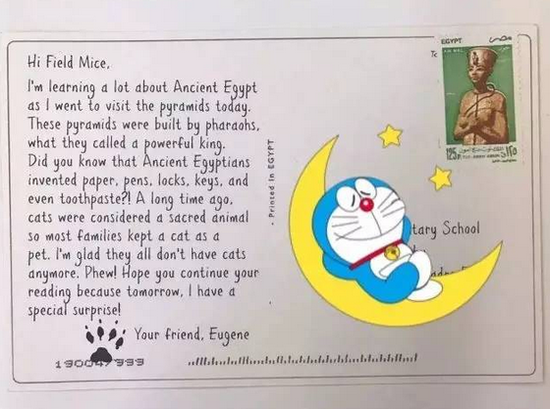 Hi Field Mice,
I'm learning a lot about Ancient Egypt
as I went to visit the pyramids today.
These pyramids were built by pharaohs,
what they called a powerful king.
Did you know that Ancient Egyptians
invented paper, pens, locks, keys, and
even toothpaste?! A long time ago,
cats were considered a sacred animal
so most families kept a cat as a
pet. I'm glad they all don't have cats
anymore. Phew! Hope you continue your
reading because tomorrow, I have a
special surprise!
Your friend, Eugene
Printed in EGYPT
EGYPT مصر
To
tary School